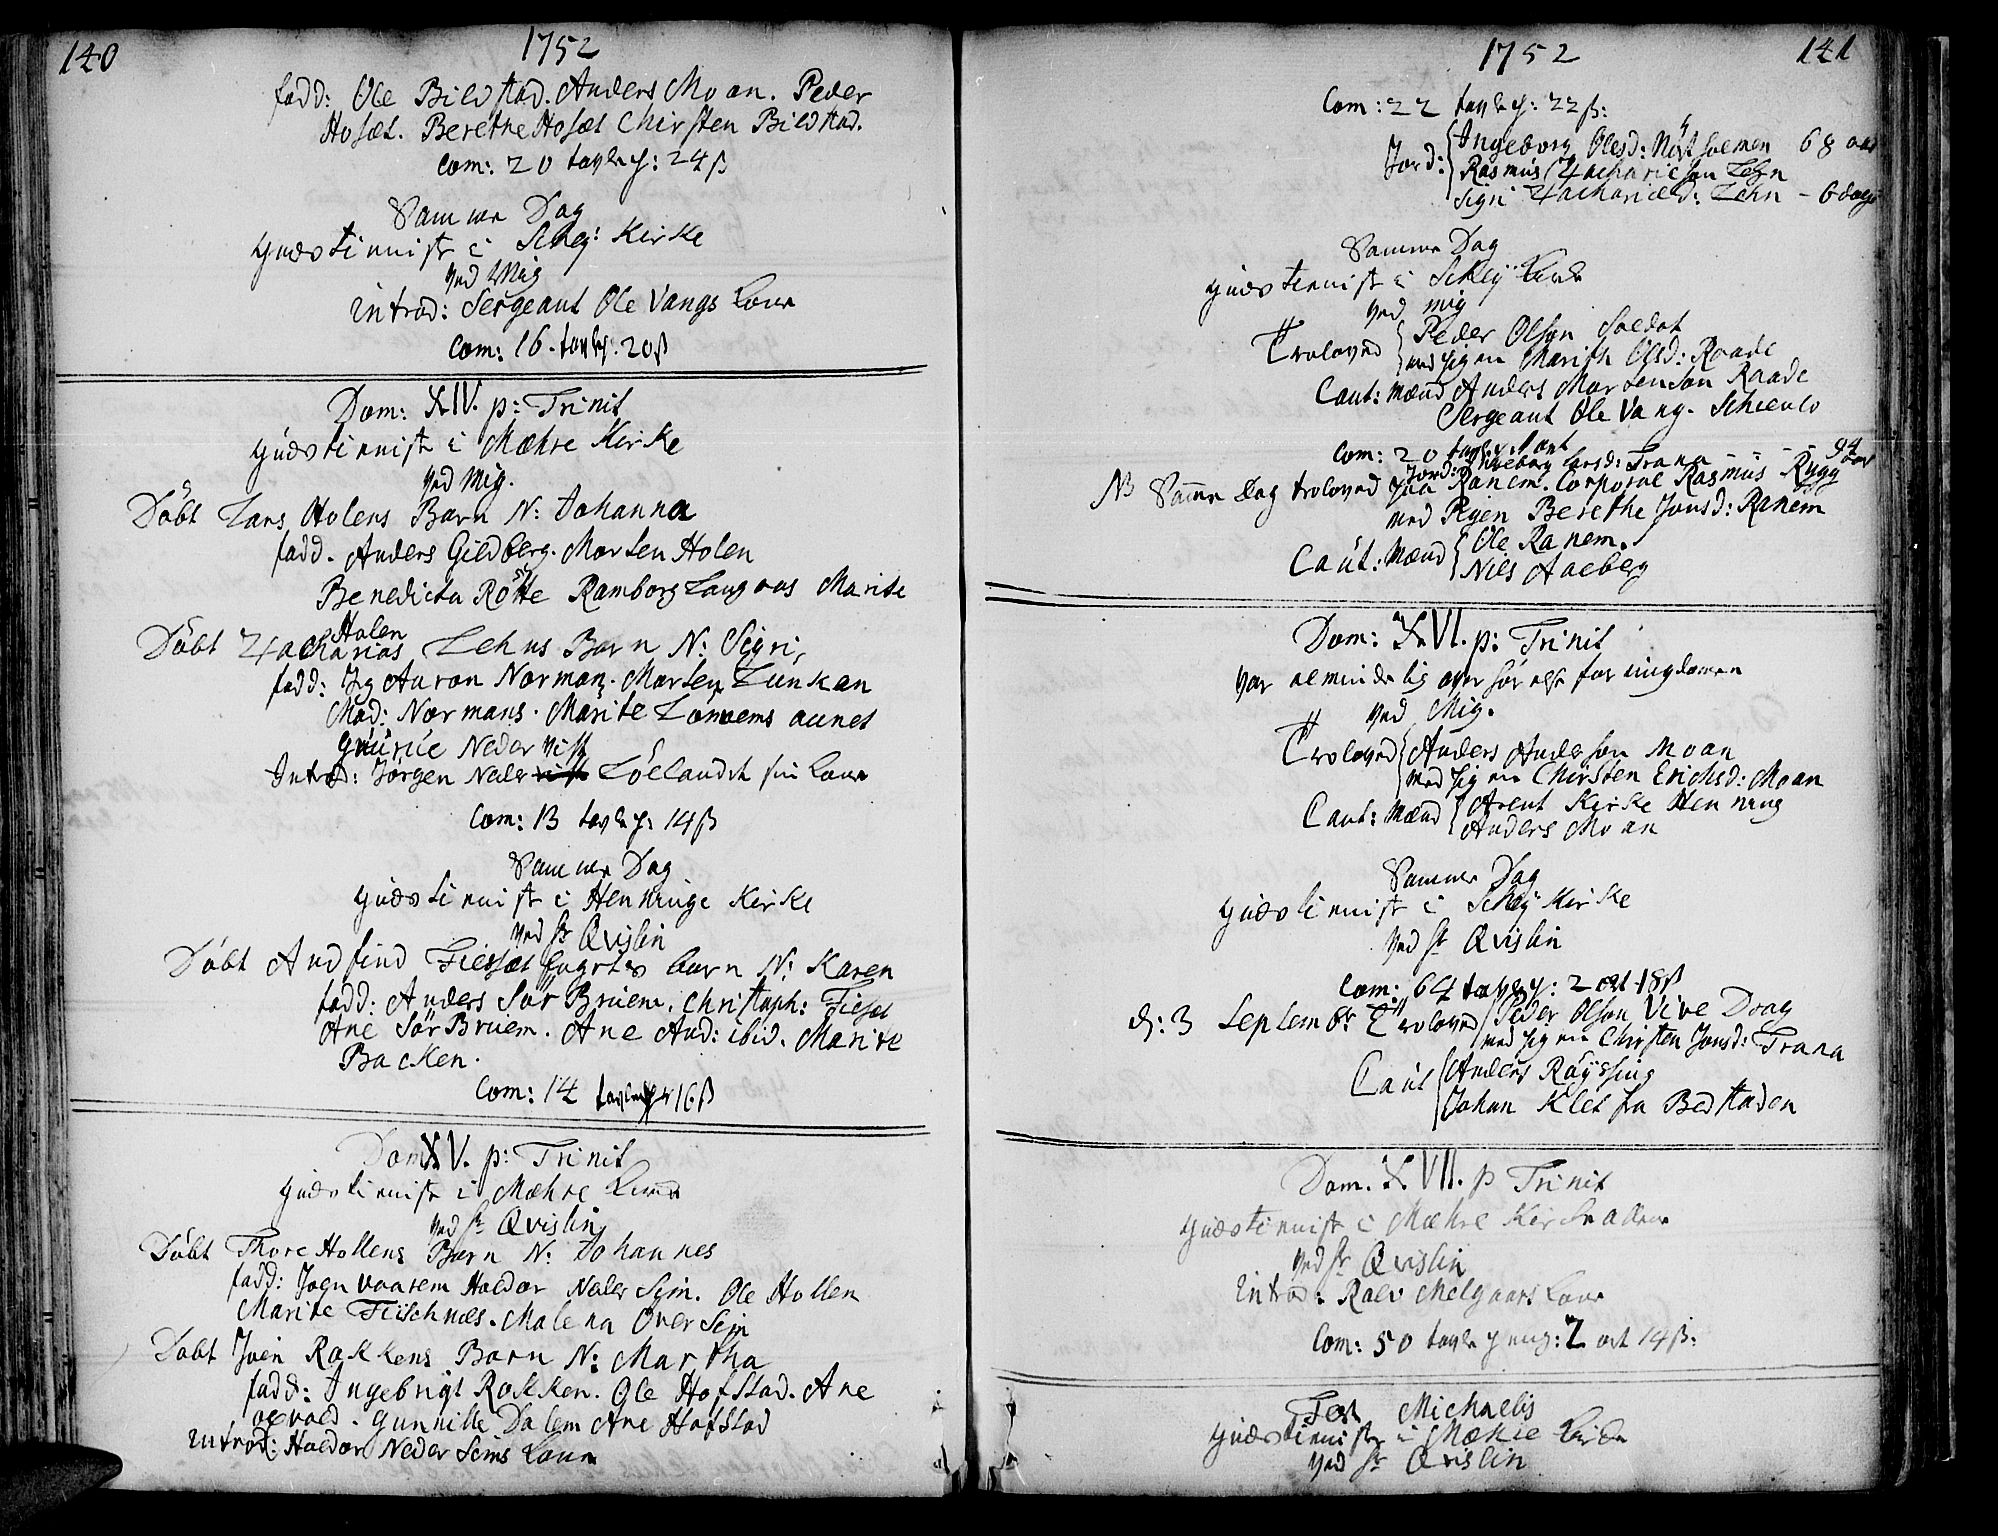 140
1752
fadd: Ole Bildstad. Anders Moan. Peder
Hosæt. Berethe Hosæt Chirsten Bildstad.
Com: 20 tavle p: 24 ß
Samme Dag
Gudstienist i Schey: Kirke
ved Mig
Introd: Sergeant Ole Vangs Kone
Com: 16. tavle p: 20 ß
Dom: XIV. p: Trinit
Gudstienist i Mæhre Kirke
ved Mig.
Döbt Lars Holens Barn N: Johanna
fadd. Anders Gildberg. Morten Holen
Benedicta Rötte Ramborg Langaas Marite
Holen
Döbt Zacharias Lehns Barn N: Sigri,
fadd: Jg Auron Norman. Morten Lunken
Mad: Normans. Marite aunet
Guurüe Neder vist
Introd: Jörgen Neder Löelandet sin Kone
Com: 13 tavle p: 14 ß
Samme Dag
Gudstienist i Henninge Kirke
ved Hr Qvislin
Döbt Andfind Fiesæt barn N: Karen
fadd: Anders Sör Bruem. Christoph: Fiesæt
Ane Sör Bruem. Ane And: ibid. Marite
Backen.
Com: 14 tavle p: 16 ß
Dom XV. p: Trinit
Gudstienist i Mæhre Kirke
ved Hr Qvislin
Döbt Thore Hollens Barn N: Johannes
fadd: Joen Vaarem Haldor Neder Sem. Ole Hollen
Marite Fiischnæs. Malena Over Sem
Döbt Joen Rokkens Barn N: Martha
fadd: Ingebrigt Rokken. Ole Hofstad. Ane
. Gunnille Dalem Ane Hofstad
Introd: Haldor Neder Sems Kone
1752
141
Com: 22 tavle p: 22 ß:
Jord: Ingeborg Olesd: 68 aar
Rasmus Zacharieson Lehn
Sigri Zachariæd: Lehn - 6 dage
Samme Dag
Gudstienist i Schey Kirke
ved mig
Troloved Peder Olson Soldat
med pigen Marith Olsd: Raade
Caut: Mænd Anders Mortenson Raade
Sergeant Ole Vang.
Com: 20 tavle p: 1 ort
Jord: Ingeborg Larsd: Trana - - - 94 aar
NB Samme Dag troloved paa Ranem. Corporal Rasmus Rygg
med Pigen Berethe Jonsd: Ranem
Caut: Mænd Ole Ranem.
Nils Aaeberg
Dom: XVI. p: Trinit
var almindelig overhörelse for ungdomen
ved Mig.
Troloved Anders Anderson Moan
med pigen Chirsten Erichsd: Moan
Caut: Mænd Arent Kirke Henning
Anders Moan
Samme Dag
Gudstienist i Schey Kirke
ved Hr Qvislin
Com: 64 tavle p: 2 ort 18 ß
d: 3 Septembr Troloved Peder Olson Vive Drag
med pigen Chirsten Jonsd: Trana
Caut Anders Röyssing
Johan Klet fra Bedstaden
Dom. XVII. p Trinit
Gudstienist i Mæhre Kirke
ved Hr Qvislin
Introd: Melgaars Kone
Com: 50 tavle penng: 2 ort 14 ß:
Fest Michaelis
Gudstienist i Mæhre Kirke
ved Hr Qvislin